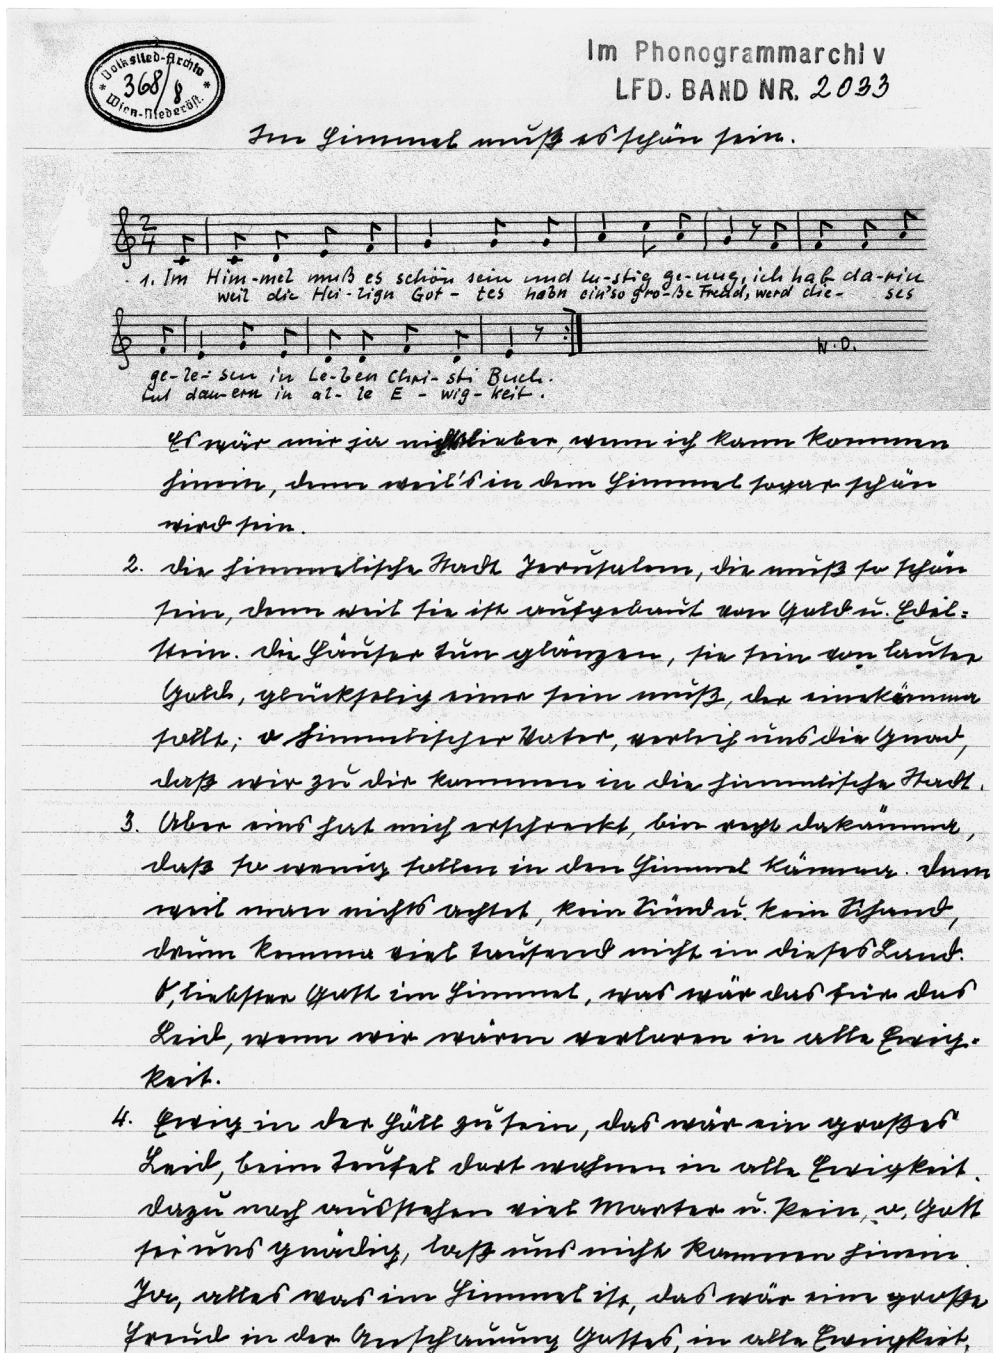 Volkslied-Archiv
368/8
Wien-Niederöst.
Im Phonogrammarchiv
LFD. BAND NR. 2033
Im Himmel muß es schön sein.
2
4
1. Im Him-mel muß es schön sein und lu-stig ge-nug, ich hab da-rin
weil die Hei-lign Got-tes habn ein' so gro-ße Freud, werd die- ses
ge-le-sen in Le-ben Chri-sti Buch.
tut dau-ern in al-le E-wig-keit.
W.D.
Es wär mir ja nichts lieber, wenn ich kann kommen
hinein, denn weil's in dem Himmel sogar schön
wird sein.
2. Die himmelische Stadt Jerusalem, die muß so schön
sein, denn weil sie ist aufgebaut von Gold u. Edel=
stein. Die Häuser tun glänzen, sie sein von lauter
Gold, glückselig einer sein muß, der einekämma
sollt; o himmlischer Vater, verleih uns die Gnad,
daß wir zu dir kommen in die himmlische Stadt.
3. Aber eins hat mich erschreckt, bin recht dakämma,
daß so wenig sollen in den Himmel kämma. Denn
weil man nichts achtet, kein Sünd u. kein Schand,
drum komma viel tausend nicht in dieses Land.
O, liebster Gott im Himmel, was wär das für das
Leid, wenn wir wären verloren in alle Ewig-
keit.
4. Ewig in der Höll zu sein, das wär ein großes
Leid, beim Teufel dort wohnen in alle Ewigkeit.
Dazu noch ausstehen viel Marter u. Pein, o, Gott
sei uns gnädig, laß uns nicht kommen hinein.
Ja, alles was im Himmel ist, das wär eine große
Freud in der Anschauung Gottes, in alle Ewigkeit,